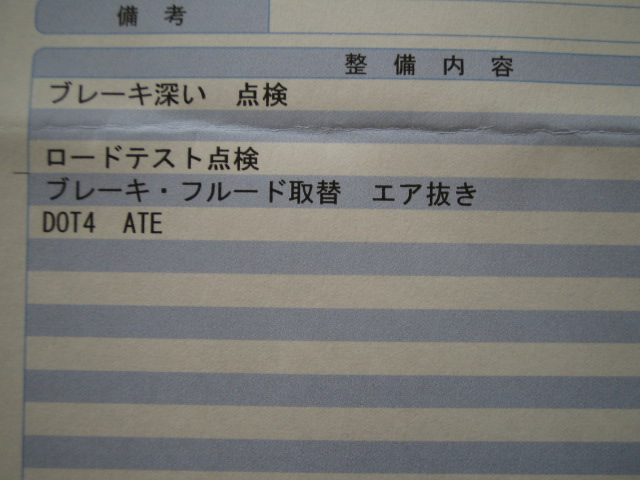 備考
整備内容
ブレーキ深い 点検
ロードテスト点検
ブレーキ・フルード取替 エア抜き
DOT4 ATE